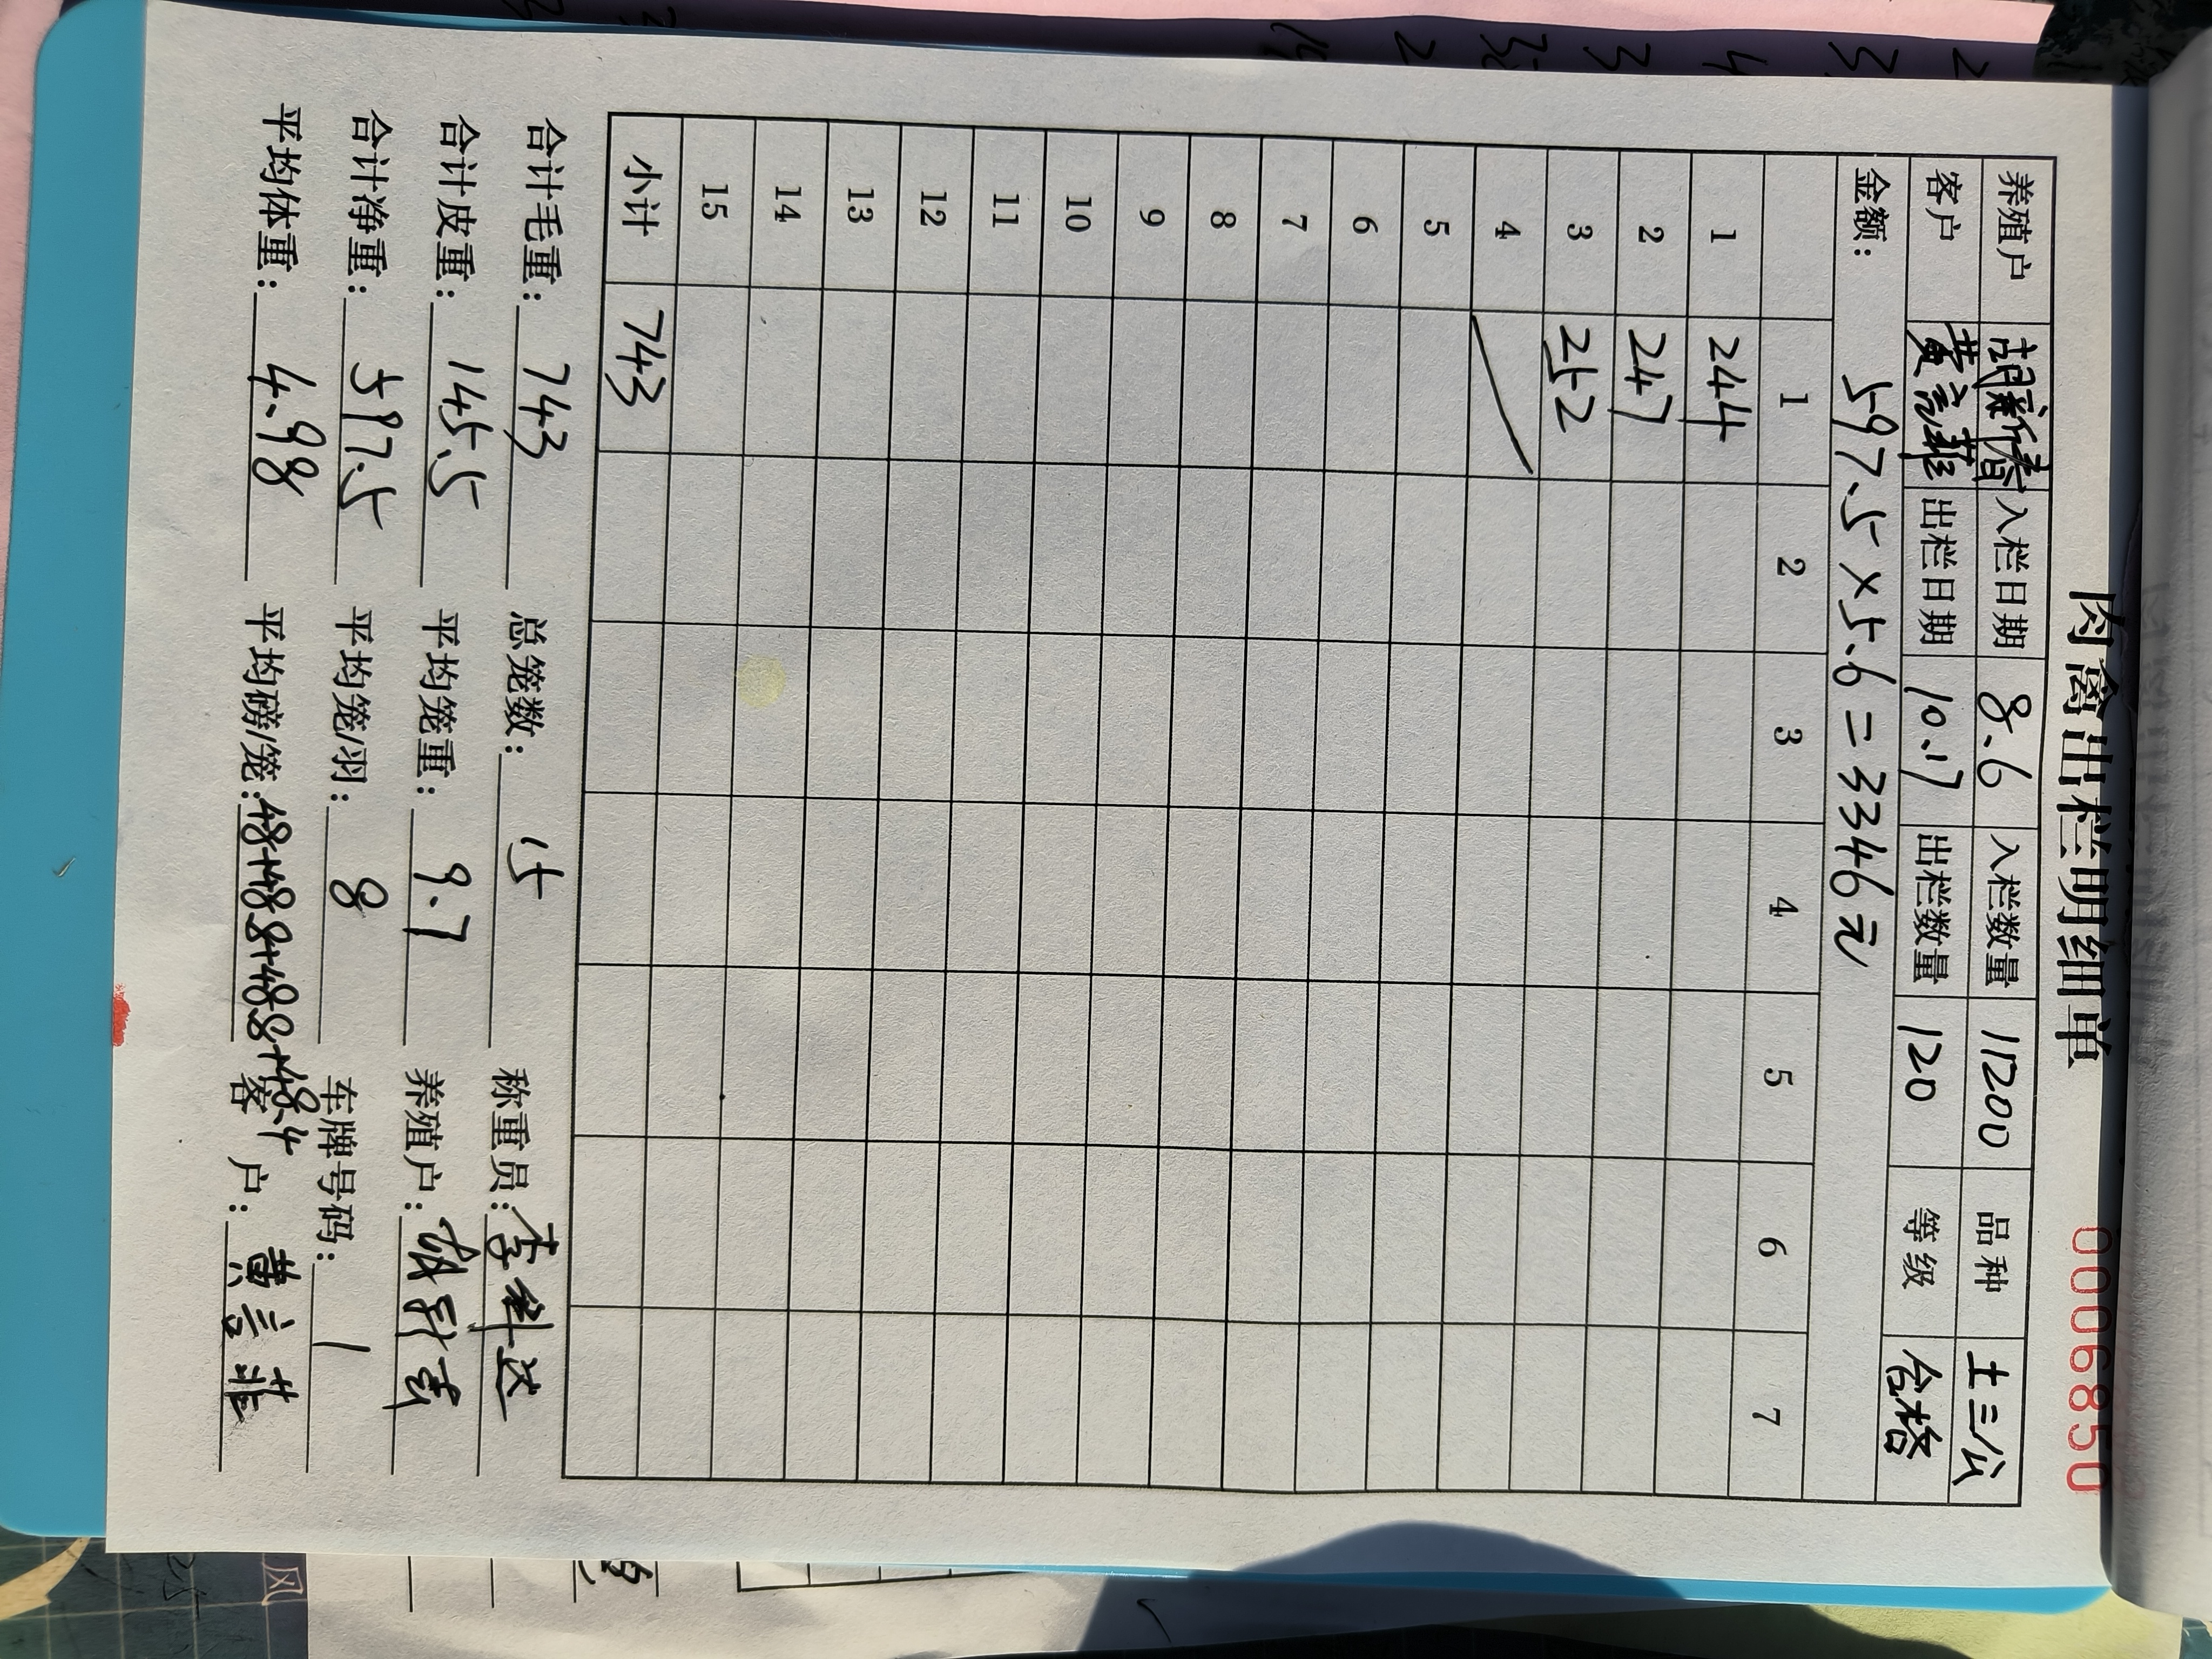 肉禽出栏明细单 0006850
养殖户 胡新春 入栏日期 8.6 入栏数量 11200 品种 土三公
客户 黄言菲 出栏日期 10.17 出栏数量 120 等级 合格
金额: 597.5×5.6=3346元
1 2 3 4 5 6 7
1 244
2 247
3 252
4
5
6
7
8
9
10
11
12
13
14
15
小计 743
合计毛重: 743 总笼数: 15 称重员: 李科达
合计皮重: 145.5 平均笼重: 9.7 养殖户: 胡新春
合计净重: 597.5 平均笼/羽: 8 车牌号码: 1
平均体重: 4.98 平均磅/笼: 48+48.8+48.8+48.4 客户: 黄言菲